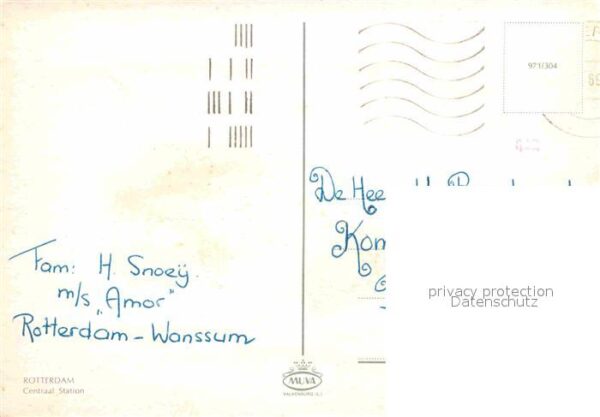 971/304
De Hee
Kon
privacy protection
Datenschutz
Fam: H. Snoeij.
m/s „Amor"
Rotterdam - Wanssum
ROTTERDAM
Centraal Station
MUVA
VALKENBURG (L.)